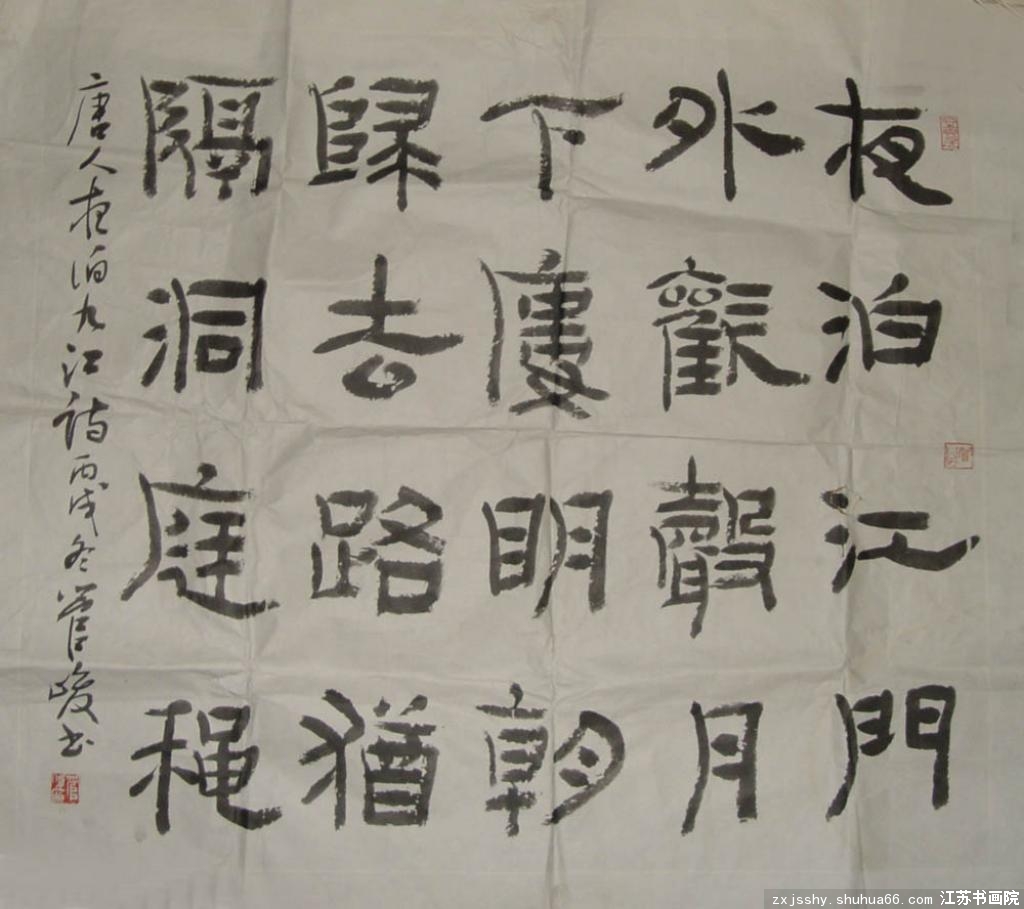 夜泊江門
外歡聲月
下廔明朝
歸去路猶
隔洞庭穐
唐人夜泊九江诗丙戌冬管峻书
zxjsshy.shuhua66.com 江苏书画院